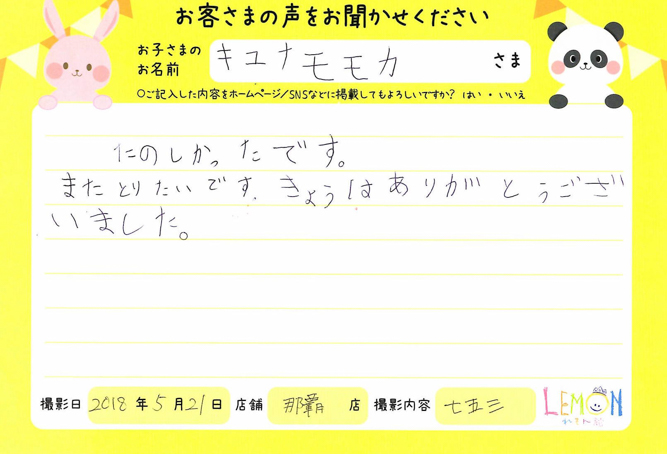 お客さまの声をお聞かせください
お子さまの
お名前 キユナモモカ さま
○ご記入した内容をホームページ/SNSなどに掲載してもよろしいですか? はい・いいえ
たのしかったです。
またとりたいです。きょうはありがとうござ
いました。
撮影日 2018年5月21日 店舗 那覇 店 撮影内容 七五三
LEMON